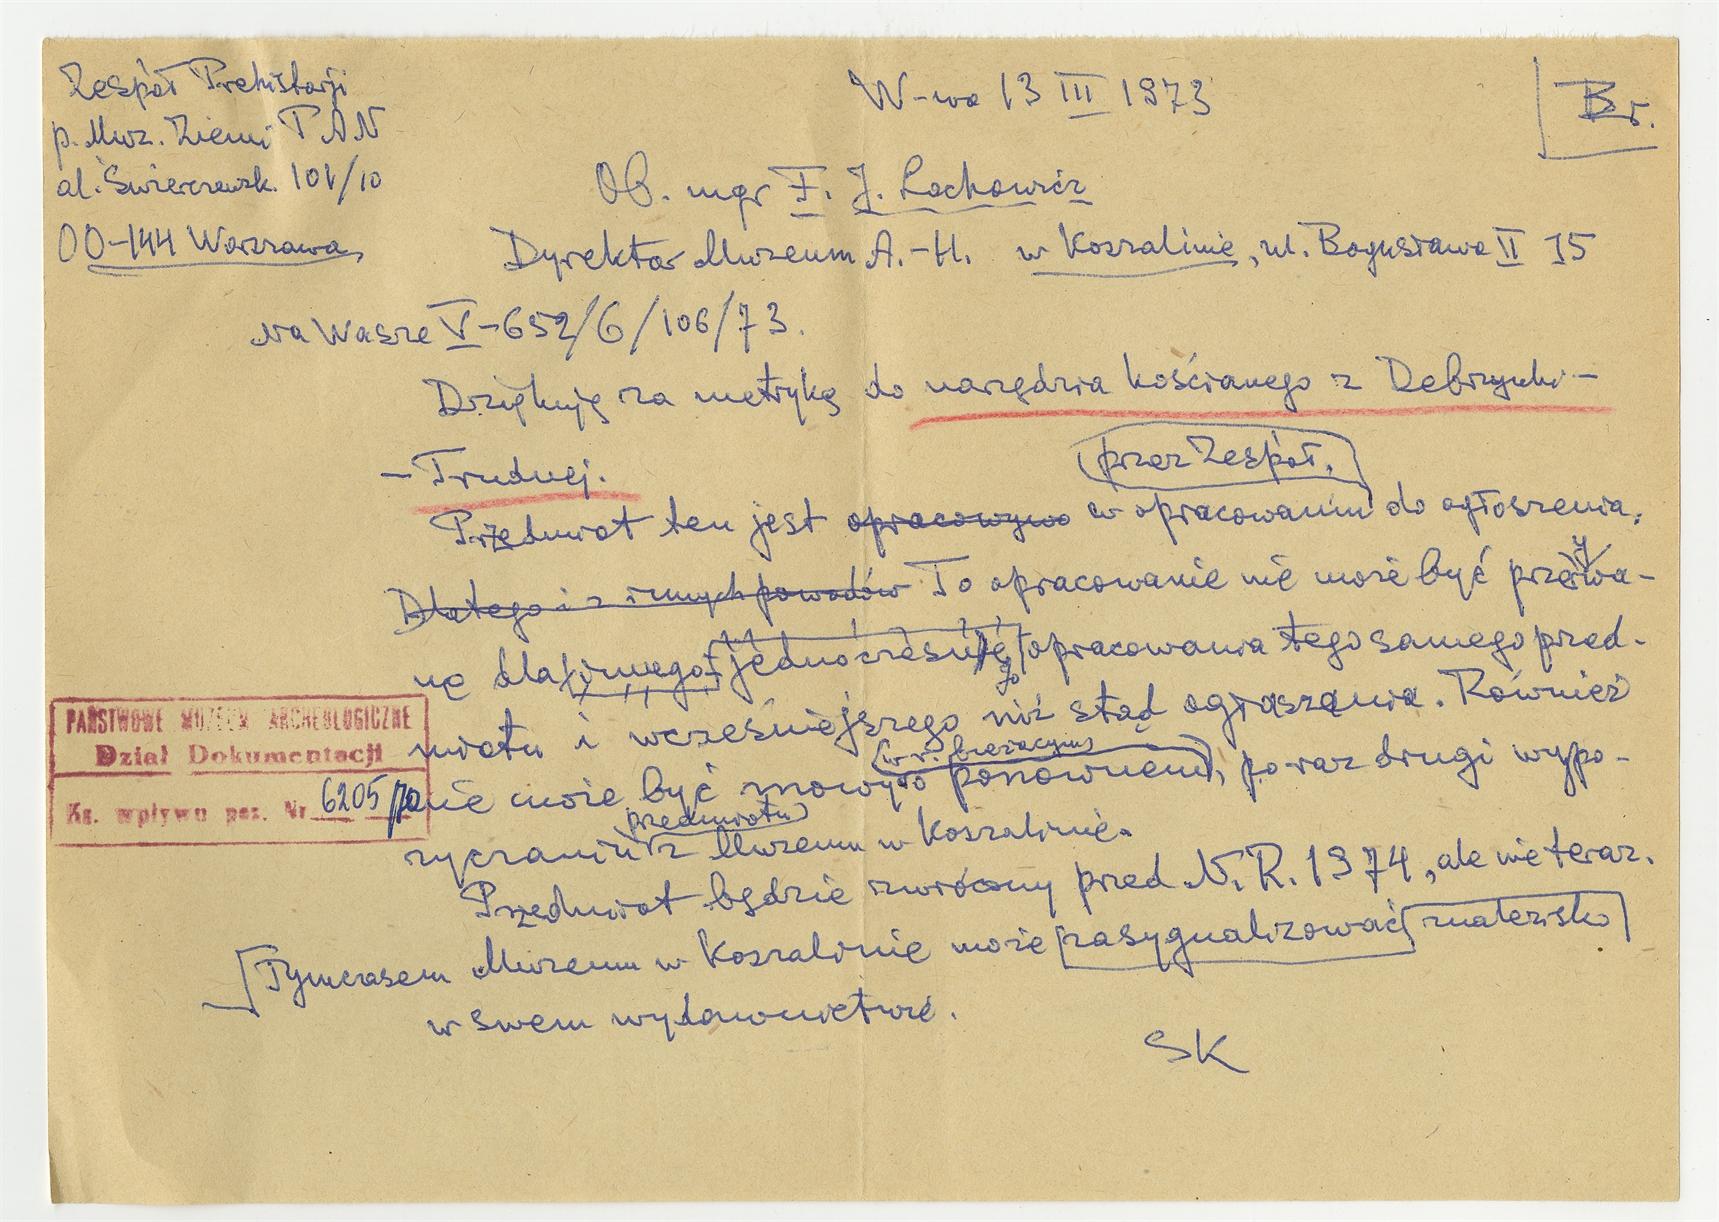 Zespół Prehistorji
p. Muz. Ziemi PAN
al. Świerczewsk. 101/10
00-144 Warszawa
W-wa 13 III 1973
Br.
Ob. mgr F. J. Lachowicz
Dyrektor Muzeum A.-H. w Koszalinie, ul. Bogusława II 15
na Wasze V-652/6/106/73.
Dziękuję za metrykę do narzędzia kościanego z Debrzynki-
- Trudnej.
przez Zespół.
Przedmiot ten jest opracowywo w opracowaniu do ogłoszenia.
Dlatego i z innych powodów To opracowanie nie może być przerywa-
ne dla innego jednocześnie opracowania tego samego przed-
miotu i wcześniejszego niż stąd ogłaszania. Również
(w r. bieżącym)
nie może być mowy o ponownem, po raz drugi wypo-
przedmiotu
życzaniu z Muzeum w Koszalinie.
Przedmiot będzie zwrócony przed N.R. 1974, ale nie teraz.
Tymczasem Muzeum w Koszalinie może zasygnalizować znalezisko
w swem wydawnictwie.
SK
PAŃSTWOWE MUZEUM ARCHEOLOGICZNE
Dział Dokumentacji
Ks. wpływu poz. Nr 6205/70